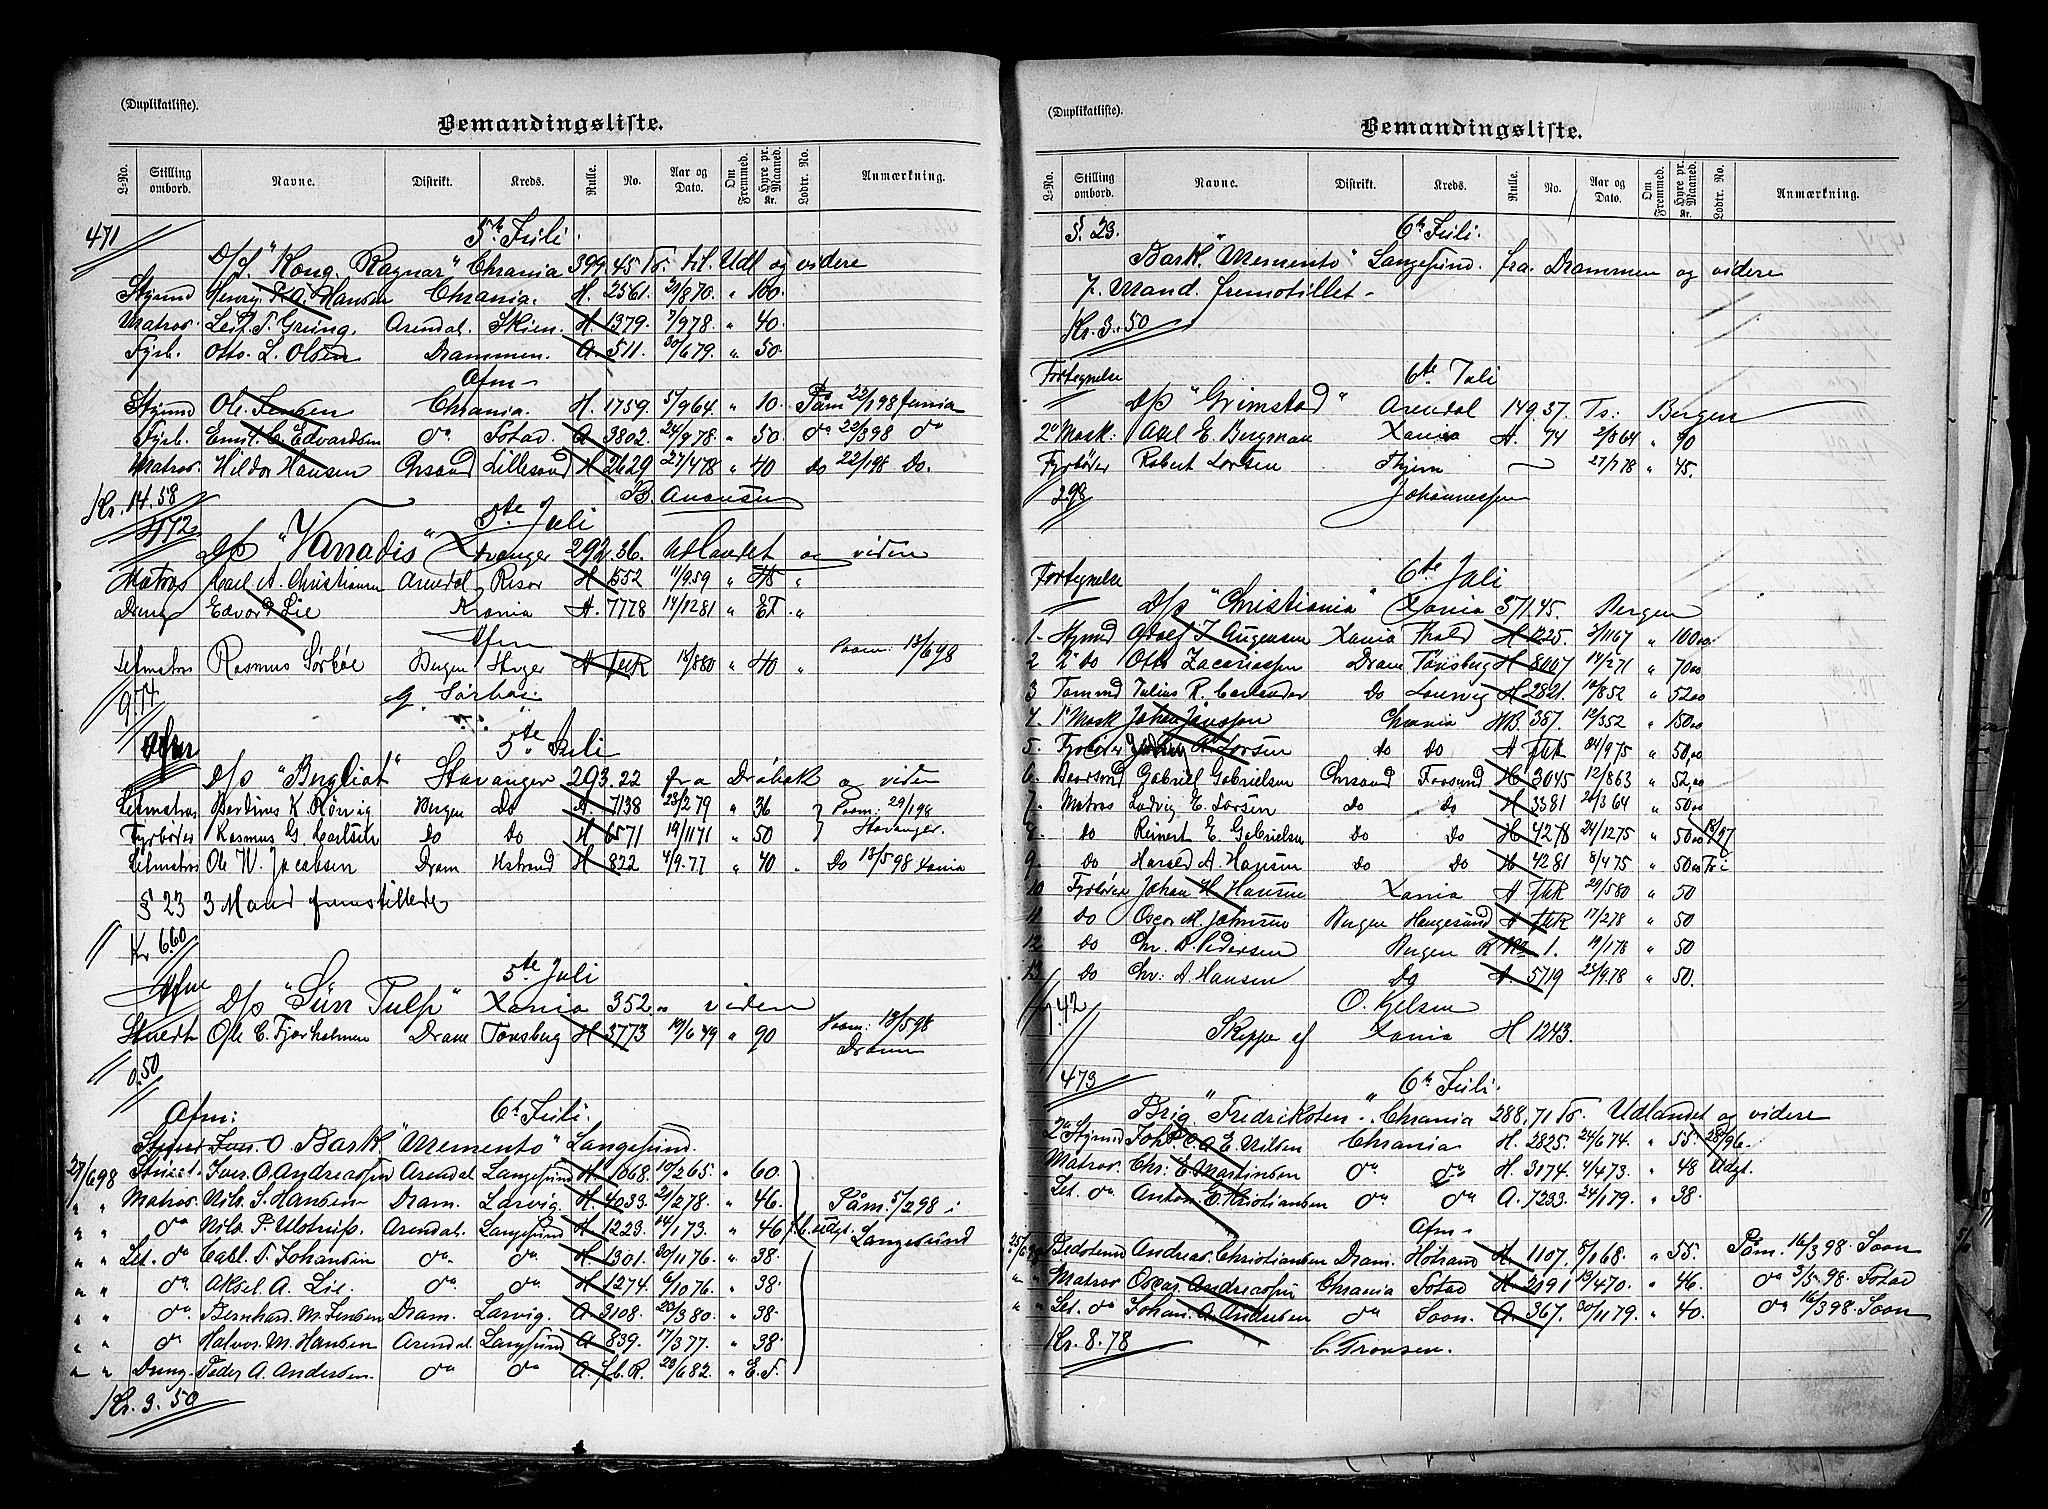 (Duplikatliste).
Bemandingsliste.
L-No. Stilling ombord. Navne. Distrikt. Kreds. Rulle. No. Aar og Dato. Om Fremmed. Hyre pr. Maaned. Kr. Lodtr. No. Anmærkning.
471 5te Juli.
D/S. "Kong Ragnar" Chrania 399.45 To. til Udl og videre
Stymd Henry. Hansen Chrania. H. 2561. 21/8 70. " 100.
Matros. Leif. T. Grüng. Arendal. Skien. H. 1379. 7/9 78. " 40.
Fyrb. Otto. L. Olsen Drammen. A. 511. 30/6 79. " 50.
Afm
Stymd Ole Jensen Chrania. H. 1759. 5/9 64. " 10. Påm 22/1 98 fania
Fyrb. Emil C. Edvardsen do Fstad. A. 3802. 24/9 78. " 50. do 22/3 98 do
Matros. Hildor Hansen Chrsand Lillesand H 2629 27/4 78 " 40 Do 22/1 98 Do.
Kr. 14.58 B. Anonsen
472 5te Juli
D/S "Vanadis" Stvanger 292.36. Udlandet og viden
Matros Carl A. Christiansen Arendal Risør H 552 11/9 59 " 45 "
Dreng Edvard Lie Xrania A. 7778 14/12 81 " EF "
Afm
Letmatros Rasmus Sørbøe Bergen Stvger A FbR 13/8 80 " 40 " Paam: 13/6 98
9.74 G. Sørbøe.
Afm 5te Juli
D/S "Bergliot" Stavanger 293.22 fra Drøbak og viden
Letmatros Berdines K Rørvig Bergen Do A. 7138 23/2 79 " 36 Paam: 29/1 98
Fyrbøder Rasmus G. Carlsen Do Do H 6571 19/11 71 " 50 Stavanger.
Letmatros Ole W. Jacobsen Dram Hstrand H. 822 4/9.77 " 40 " Do 13/5 98 Xania
§ 23 3 Mand fremstillede
Kr 6.60
Afm 5te Juli
D/S "Sün Tulp" Xania 352. " viden
Stuedt Ole C. Fjorholmen Dram Tønsberg H. 3773 19/6 49 " 90 Paam: 13/5 98
0.50 Dramn
Afm: 6te Juli.
Bark. "Memento" Langesund.
27/6 98 Stuert. Iver. O. Andreasen Arendal Langesund H. 1068. 10/2 65. " 60.
" " Matros. Nils. S. Hansen Dram. Larvig. H. 4033. 21/2 78. " 46. Påm. 5/2 98 i
" " do Nils. P. Ulstrup. Arendal. Langesund H. 1223. 14/1 73. " 46 f.b. udgt. Langesund
" " Let. do Carl. T. Johansen do do H. 1301. 30/11 76. " 38.
" " do Aksel. A. Lie. do do H. 1274. 6/10 76. " 38.
" " do Bernhard. M. Jensen Dram. Larvig. A. 3108. 20/3 80. " 38.
" " do Halvor. M. Hansen Arendal. Langesund A. 839. 17/3 77. " 38.
" " Dreng. Peder A. Andersen. do do A. f.b.R. 23/6 82. " E.F.
Kr. 3.50
(Duplikatliste).
Bemandingsliste.
L-No. Stilling ombord. Navne. Distrikt. Kreds. Rulle. No. Aar og Dato. Om Fremmed. Hyre pr. Maaned. Kr. Lodtr. No. Anmærkning.
§. 23. 6te Juli.
Bark. "Memento" Langesund. fra. Drammen og videre
7. Mand. fremstillet
Kr. 3.50
Fortegnelse 6te Juli
D/S "Grimstad" Arendal 149.37. Ts: Bergen
2' Mask: Axel E. Bergman Xania A. 74 2/8 64 " 90
Fyrbøder Robert Larsen Thjem 27/7 78 " 45.
2.98 Johannessen
Fortegnelse 6te Juli
D/S "Christiania" Xania 371.45. Bergen
1. Stymd Adolf J. Augensen Xania Fhald H 1225. 3/11 67 " 100.00
2 2' do Otto Zacariassen Dram Tønsberg H 8007 14/2 71 " 70.00
3 Tømmd Julius R. Carlander Do Laurvig H 2821. 10/8 52 " 52.00
4. 1' Mask Johan Jonsson Chrania MB. 387. 12/3 52 " 150.00
5. Fyrbøder Johan A. Larsen do do A FbR 04/9 75 " 50.00
6. Baadsmd Gabriel Gabrielsen Chrsand Farsund H 3045 12/8 63 " 52.00
7. Matros Ludvig E. Larsen do do H 3381 20/3 64 " 50.00
8. do Reinert E. Gabrielsen Do Do H 4278 24/12 75 " 50.00 19/97
9. do Harald A. Hansen do Do H 4281 8/4 75 " 50.00 Fri
10 Fyrbøder Johan H. Hansen Xania A FbR 29/5 80 " 50
11 do Oscar M. Johnsen Bergen Haugesund A FbR 17/2 78 " 50
12 do Chr. A. Pedersen Bergen 1. 19/1 78 " 50
13 Do Chr: A. Hansen do A. 5719 23/9.78 " 50.
7.42 O. Kjelsen
Skipper af Xania H 1243.
473 6te Juli.
Brig. "Fredriksten". Chrania 288.71 To. Udlandet og videre
2den Stymd Joh. C. A. E. Nilsen Chrania H. 2825. 24/6 74. " 55. 28/96.
Matros. Chr: E. Martinsen do do H. 3174. 4/4 73. " 48 Udgt.
Let. do Anton. E. Kristiansen do do A. 7233. 24/1 79. " 38.
Afm
25/6 98 Bedstemd Andreas. Christiansen Dram. Hstrand H. 1107. 8/1 68. " 55. Påm. 16/3 98. Soon
" " Matros Oscar. Andreasen Chrania Fstad H. 2191 19/4 70. " 46. do 3/5.98. Fstad
" " Let. do Johan. A. Andresen do Soon. A. 367. 30/11 79. " 40. do 16/3 98. Soon
Kr. 8.78 C. Tronsen.